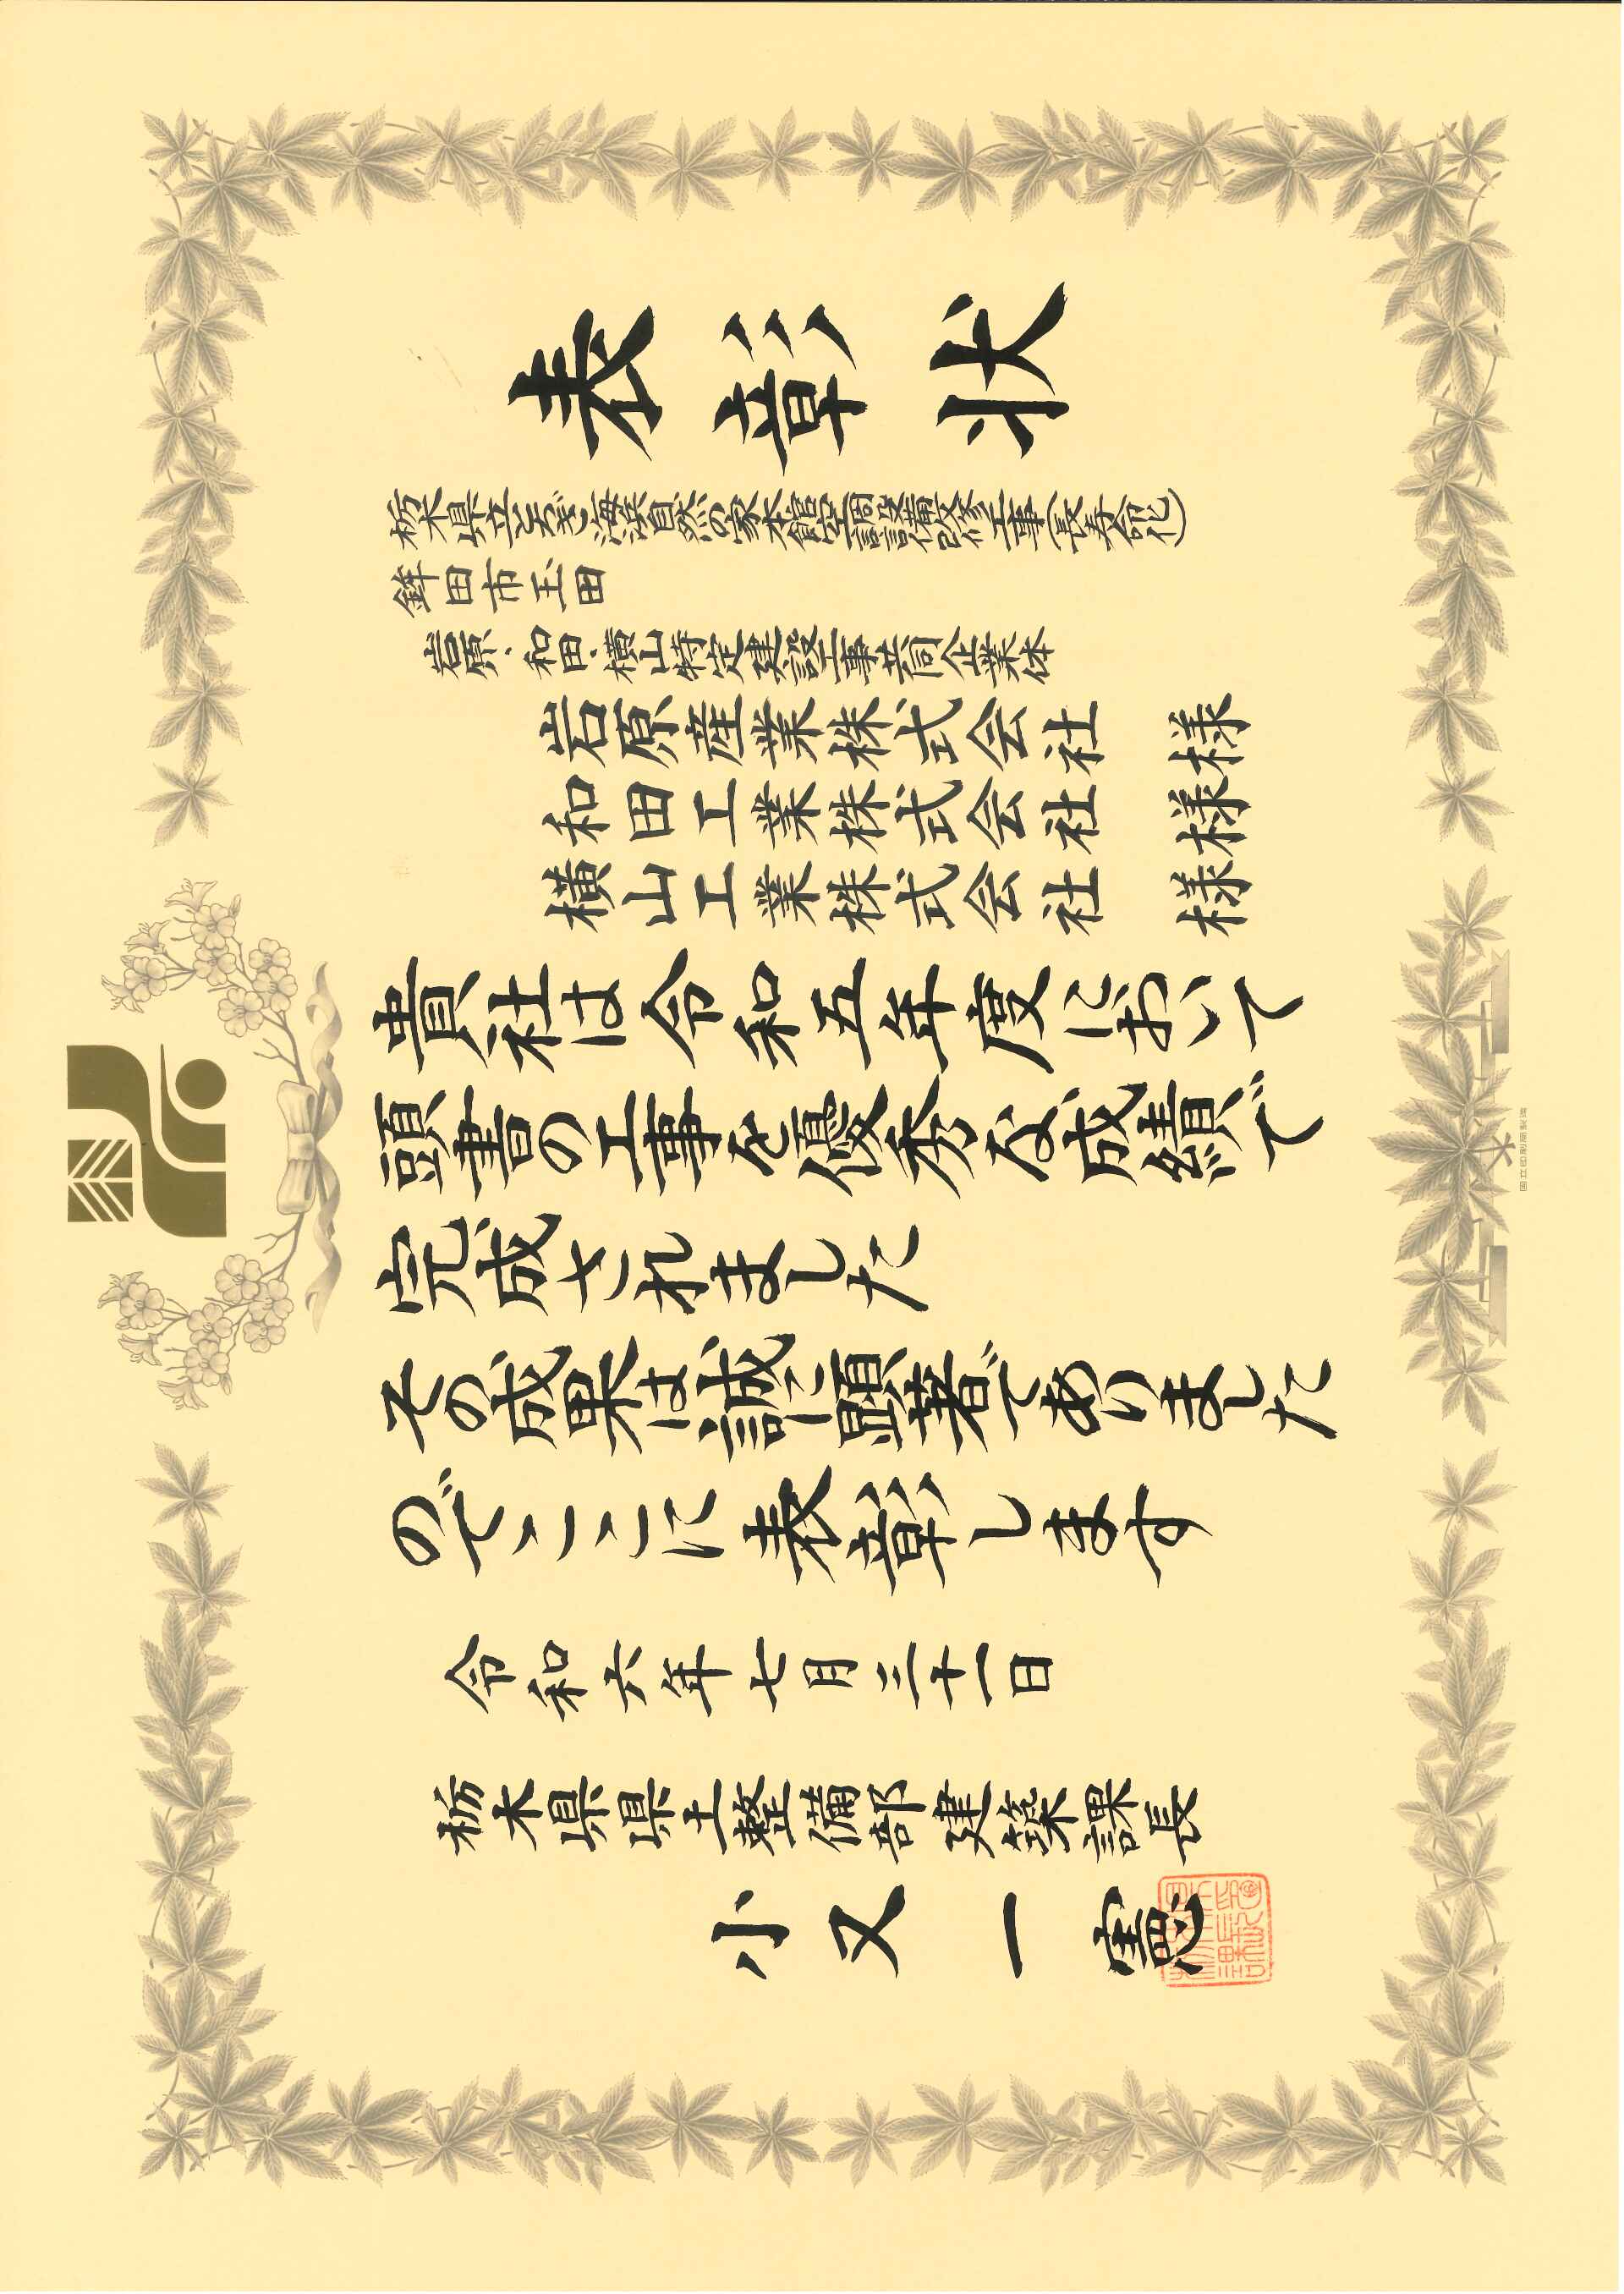 表彰状
栃木県立とちぎ海浜自然の家本館空調設備改修工事(長寿命化)
鉾田市玉田
岩原・和田・横山特定建設工事共同企業体
岩原産業株式会社 様
和田工業株式会社 様
横山工業株式会社 様
貴社は令和五年度において
頭書の工事を優秀な成績で
完成されました
その成果は誠に顕著でありました
のでここに表彰します
令和六年七月三十一日
栃木県県土整備部建築課長
小又一憲
国立印刷局製造